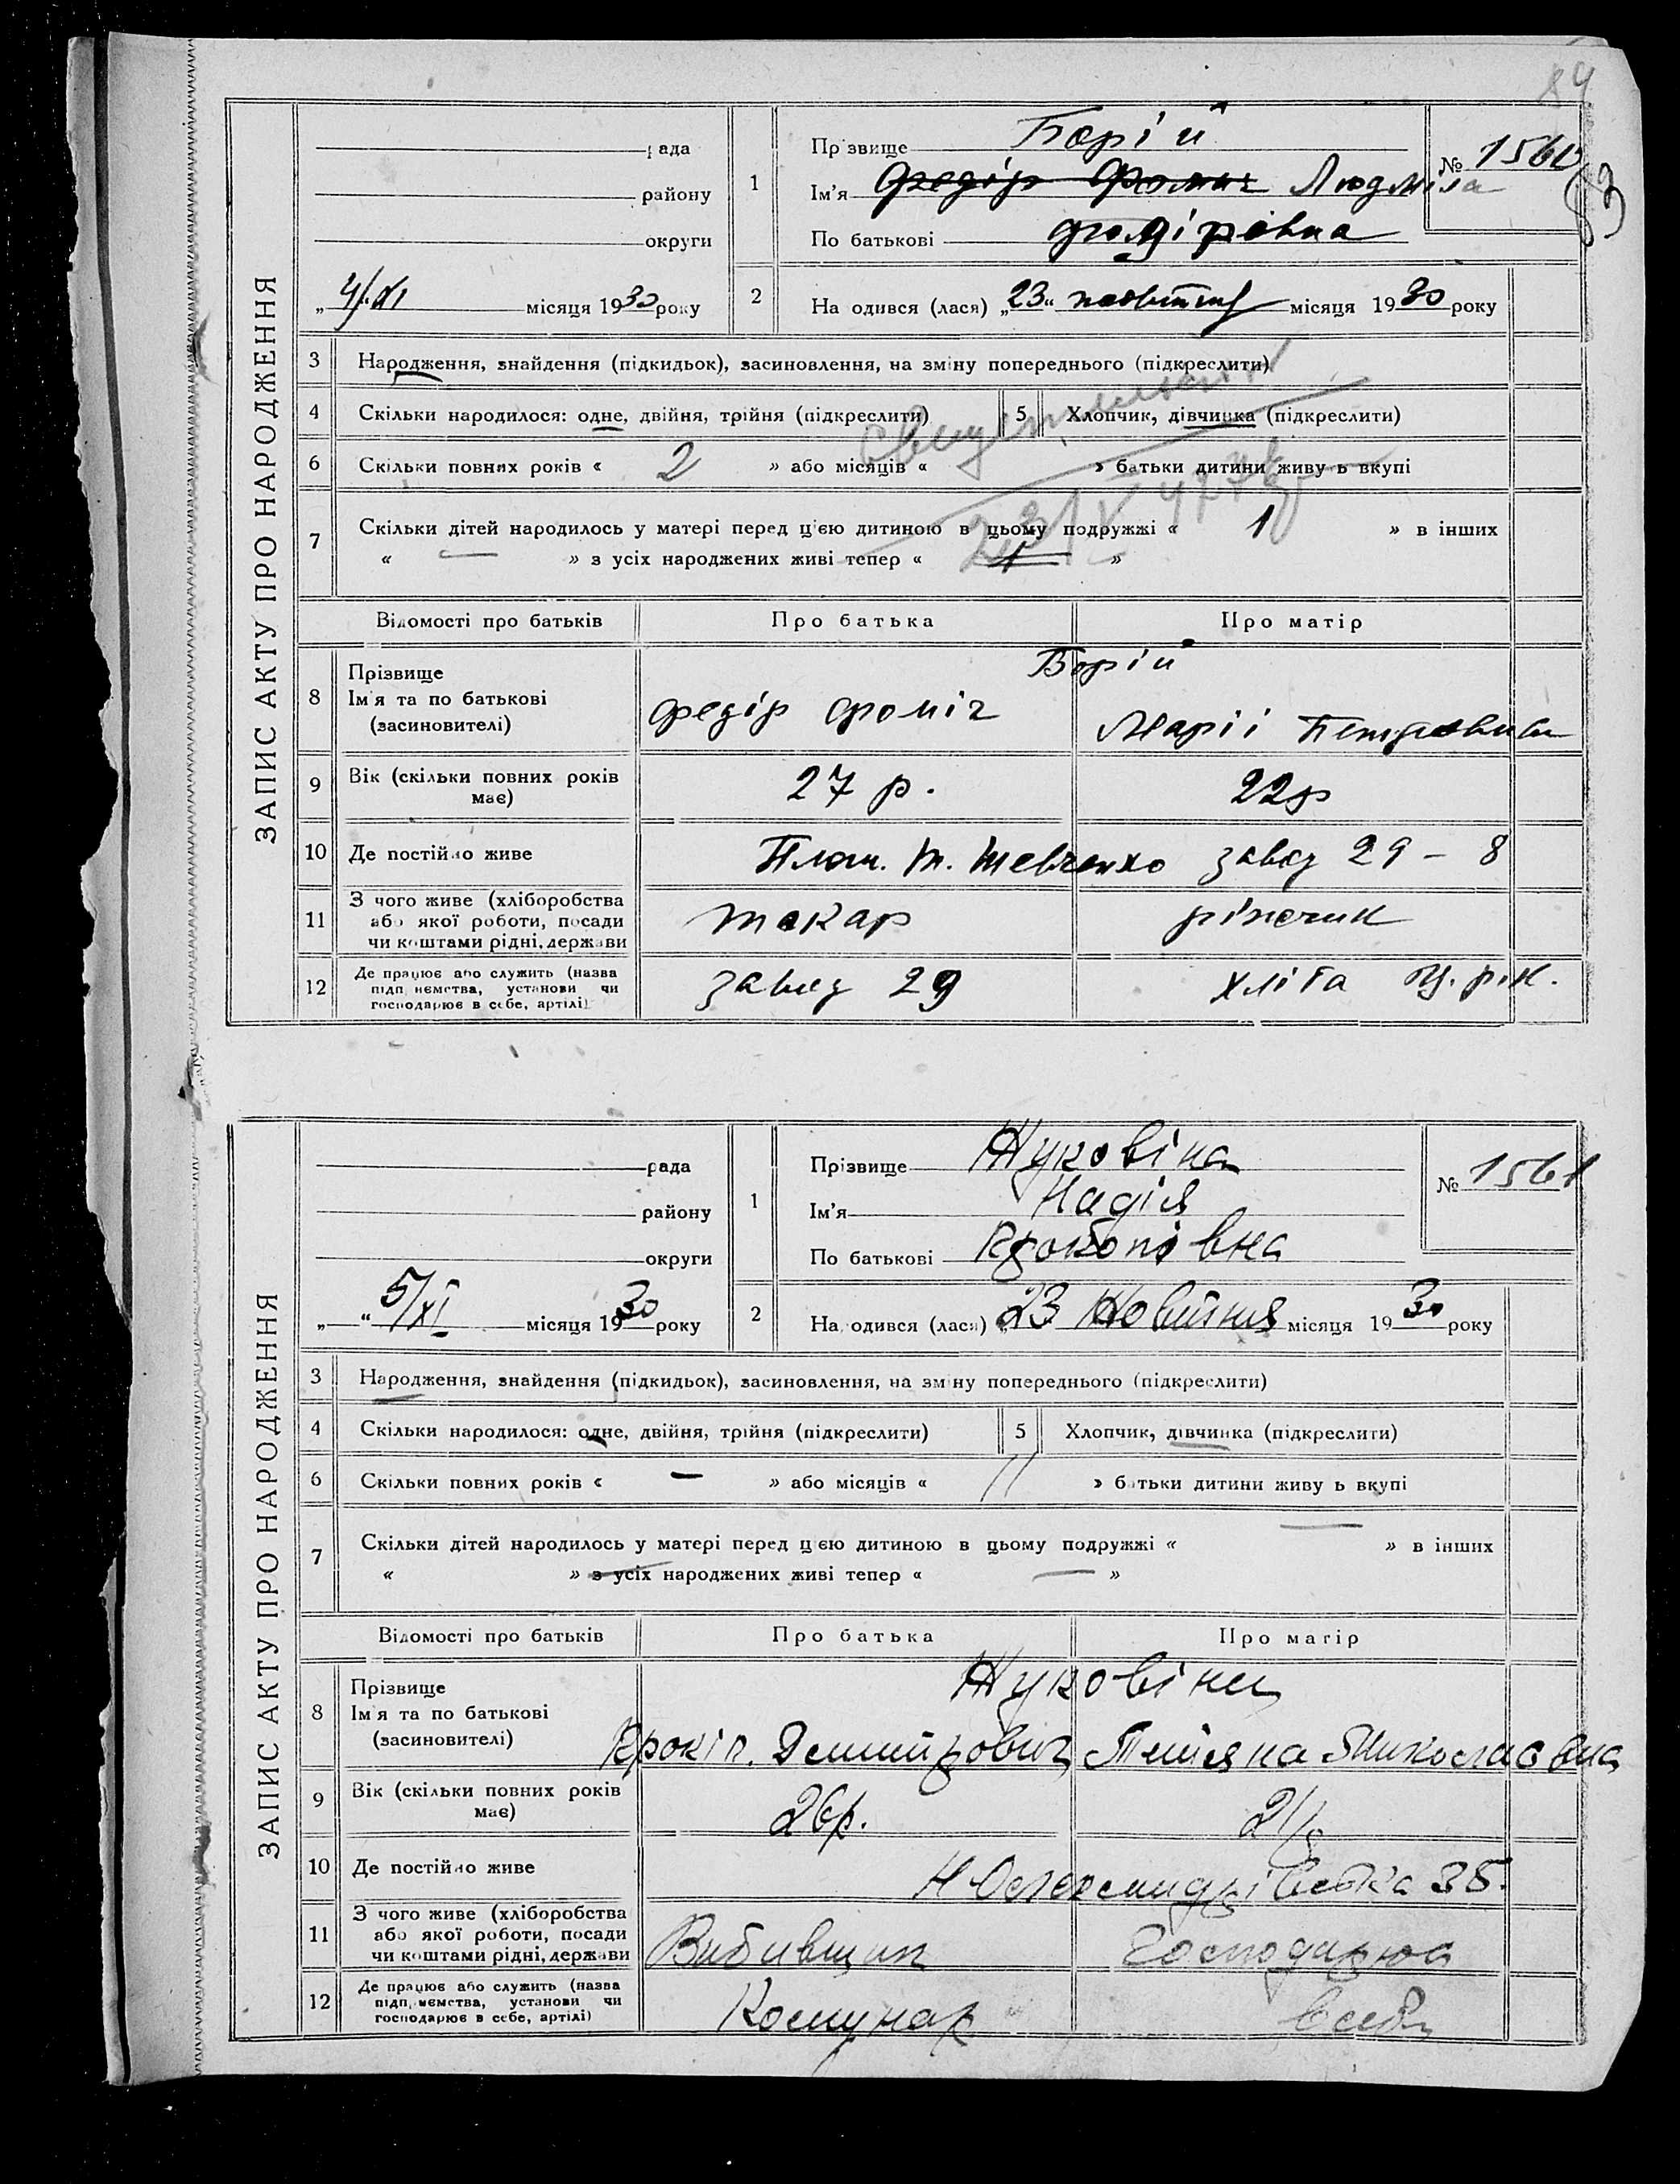 84
83
ЗАПИС АКТУ ПРО НАРОДЖЕННЯ
рада
району
округи
„ 4/XI місяця 1930 року
1
Прізвище Борій
Ім'я Федір Фоміч Людміла
По батькові Федірівна
№ 1560
2
На одився (лася) „23“ жовтня місяця 1930 року
3 Народження, знайдення (підкидьок), засиновлення, на зміну попереднього (підкреслити)
4 Скільки народилося: одне, двійня, трійня (підкреслити) 5 Хлопчик, дівчинка (підкреслити)
6 Скільки повних років « 2 » або місяців « » батьки дитини живу ь вкупі
7 Скільки дітей народилось у матері перед цією дитиною в цьому подружжі « 1 » в інших
« — » з усіх народжених живі тепер « 1 »
Відомості про батьків Про батька Про матір
8 Прізвище Борій
Ім'я та по батькові
(засиновителі)
Федір Фоміч Марії Петровни
9 Вік (скільки повних років
має)
27 р. 22 р
10 Де постійно живе Т. Шевченко завод 29 – 8
11 З чого живе (хліборобства
або якої роботи, посади
чи коштами рідні, держави
токар
12 Де працює або служить (назва
підп иємства, установи чи
господарює в себе, артілі)
завод 29
ЗАПИС АКТУ ПРО НАРОДЖЕННЯ
рада
району
округи
„ “ 5/XI місяця 1930 року
1
Прізвище Жуковіна
Ім'я Надія
По батькові Прокопівна
№ 1561
2
На одився (лася) „ 23 Жовтня місяця 1930 року
3 Народження, знайдення (підкидьок), засиновлення, на зміну попереднього (підкреслити)
4 Скільки народилося: одне, двійня, трійня (підкреслити) 5 Хлопчик, дівчинка (підкреслити)
6 Скільки повних років « – » або місяців « 11 » батьки дитини живу ь вкупі
7 Скільки дітей народилось у матері перед цією дитиною в цьому подружжі « — » в інших
« — » з усіх народжених живі тепер « — »
Відомості про батьків Про батька Про матір
8 Прізвище Жуковіни
Ім'я та по батькові
(засиновителі)
Прокіп. Дмитрович Тетяна Миколаєвна
9 Вік (скільки повних років
має)
26 р. 21 р
10 Де постійно живе Н Олександрівська 35.
11 З чого живе (хліборобства
або якої роботи, посади
чи коштами рідні, держави
Вибивщик Господарює
12 Де працює або служить (назва
підп иємства, установи чи
господарює в себе, артілі)
Комунар